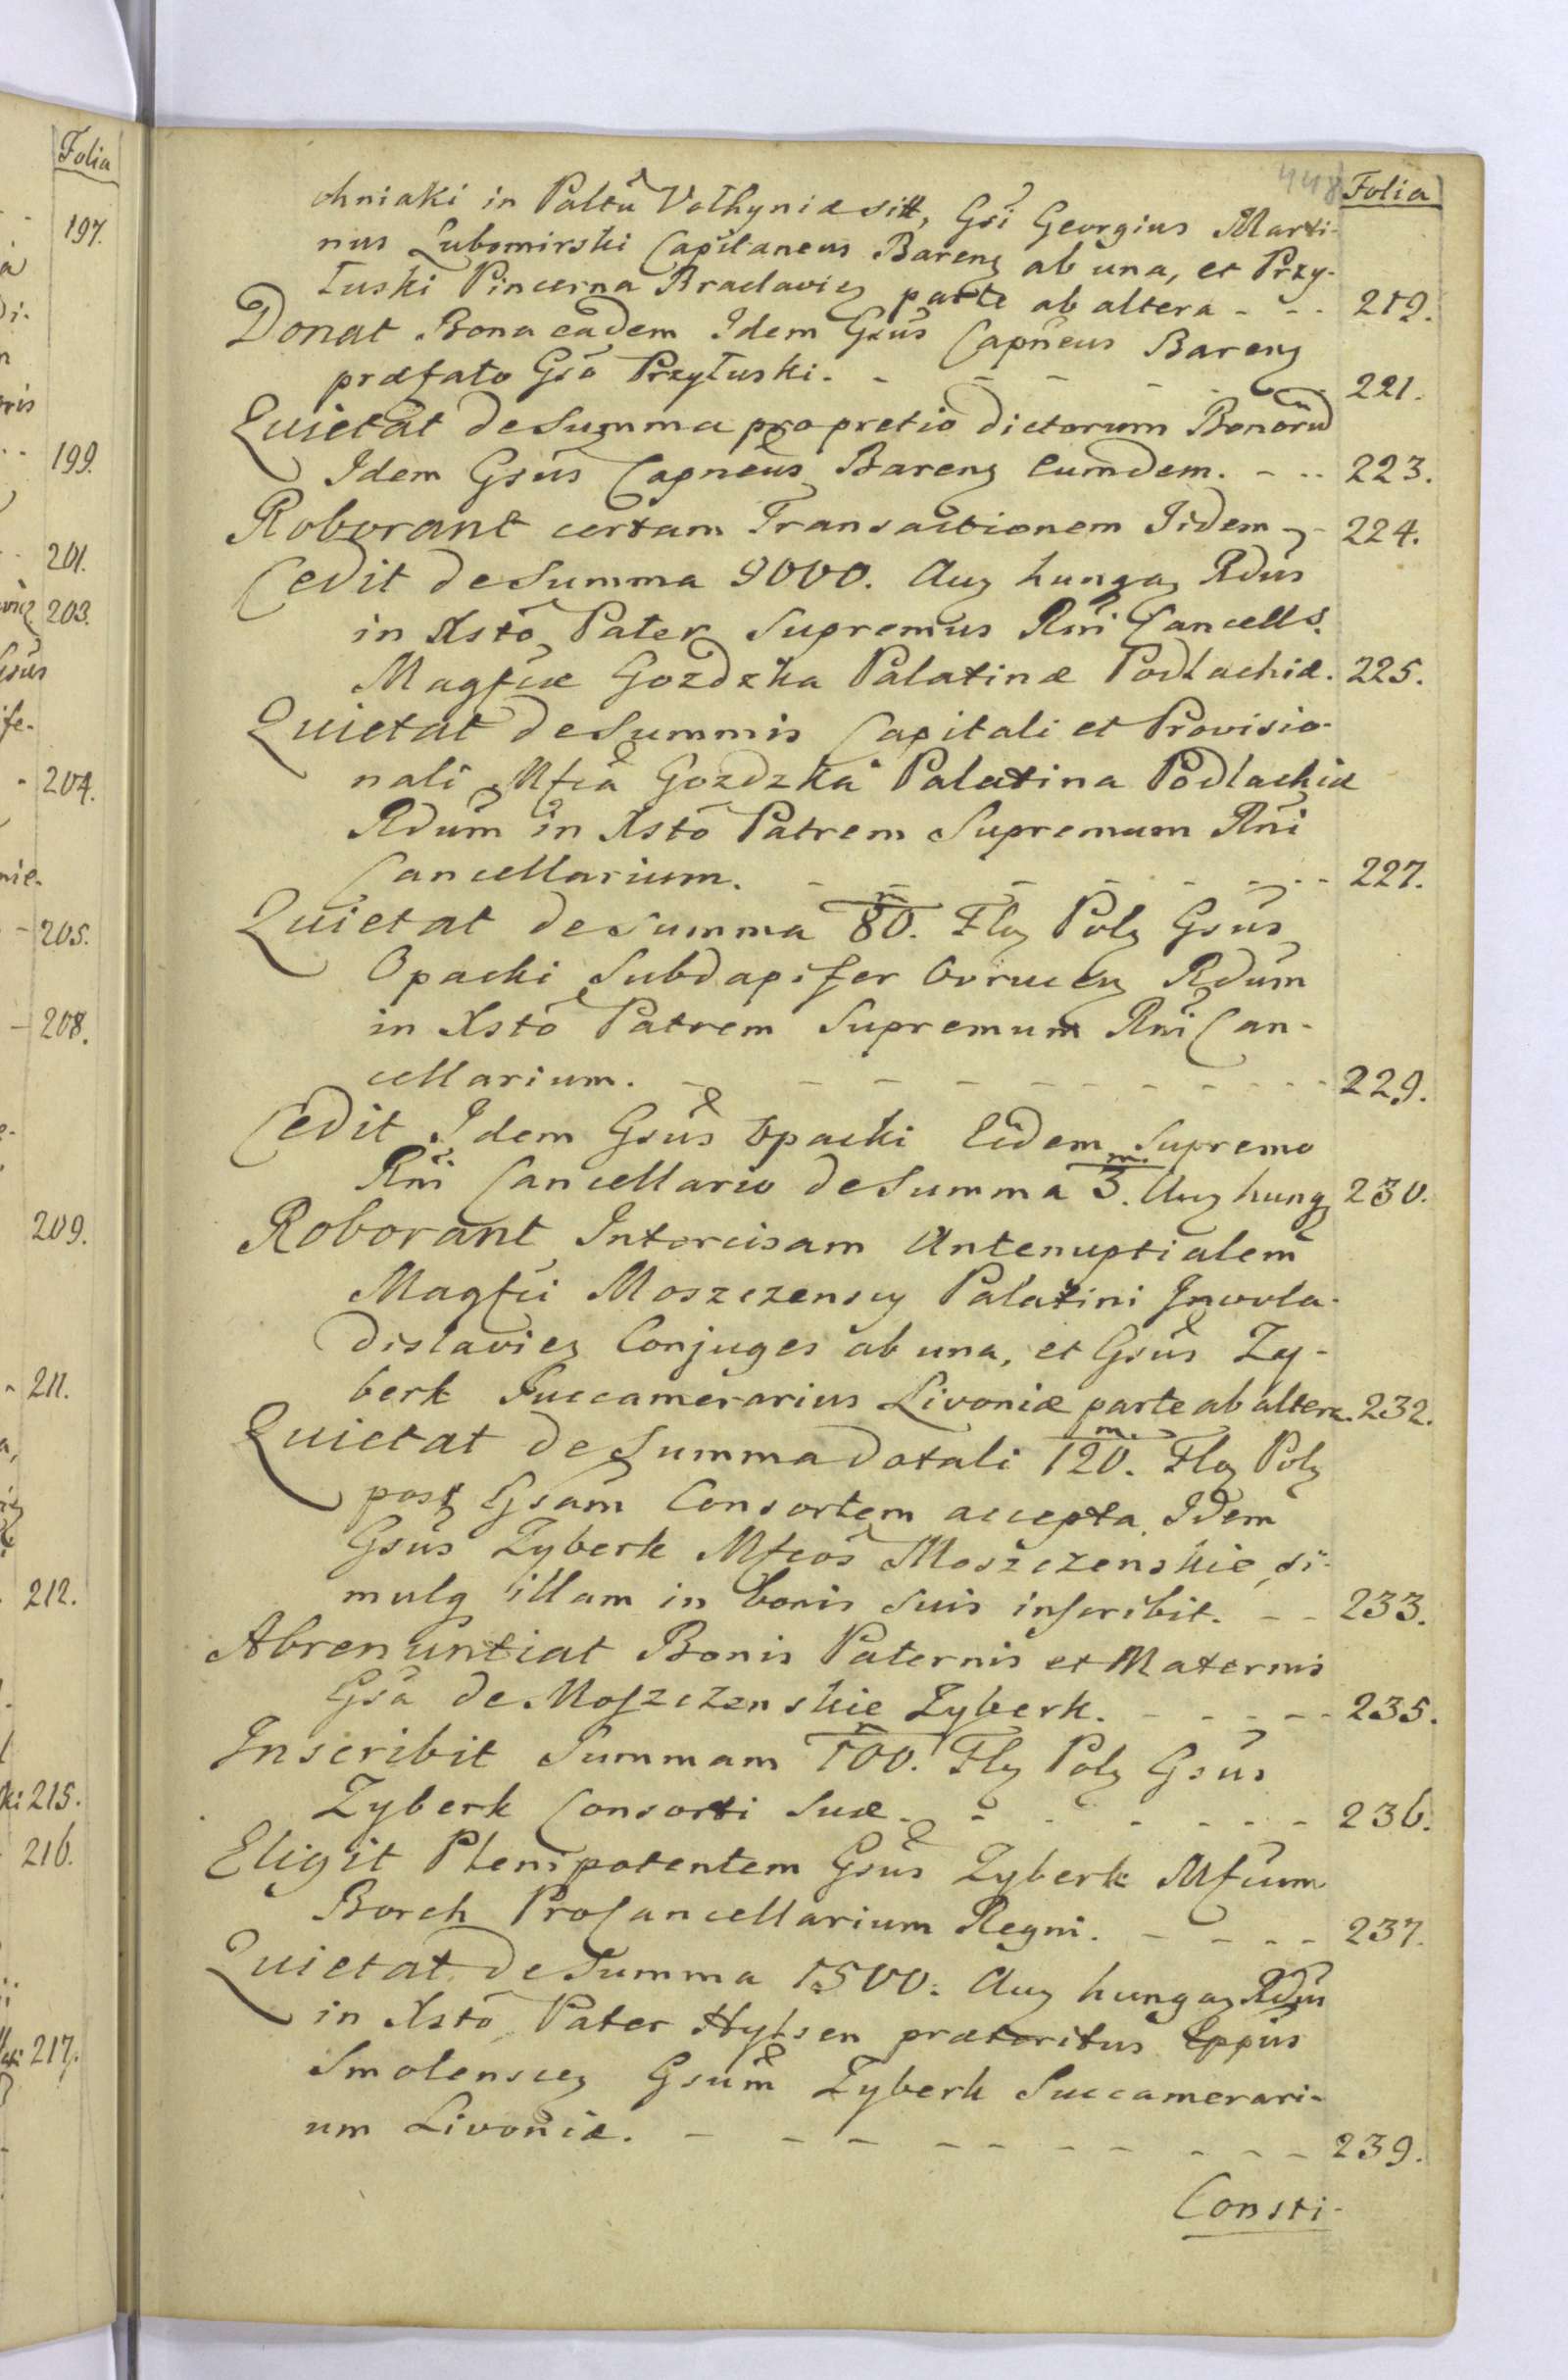 Folia
197.
199.
201.
203.
204.
205.
208.
209.
211.
212.
215.
216.
217.
448 Folia
chniaki in Paltũ Volhyniæ sitt, Gsi Georgius Marti-
nus Lubomirski Capitaneus Bareng ab una, et Przy-
łuski Pincerna Braclavieg parte ab altera - - - 219.
Donat Bona eadem Idem Gsus Capneus Bareng
præfato Gso Przyłuski. - - - - - - 221.
Quietat de Summa pro pretio dictorum Bonorũ
Idem Gsus Capneus Bareng Eumdem. - - - 223.
Roborant certam Transactionem Iidem - - 224.
Cedit de Summa 9000. Aug hungag Rdus
in Xsto Pater Supremus Rni Cancells.
Magfcæ Gozdzka Palatinæ Podlachiæ. 225.
Quietat de Summis Capitali et Provisio-
nali Mfca Gozdzka Palatina Podlachiæ
Rdum in Xsto Patrem Supremum Rni
Cancellarium. - - - - - - - 227.
Quietat de Summa 80. m Flog Polg Gsus
Opacki Subdapifer Ovruceng Rdum
in Xsto Patrem Supremum Rni Can-
cellarium. - - - - - - - - - 229.
Cedit Idem Gsus Opacki Eidem Supremo
Rni Cancellario de Summa 3. m. Aug hung 230.
Roborant Intercisam Antenuptialem
Magfci Moszczenscy Palatini Inovla-
dislavieg Conjuges ab una, et Gsus Zy-
berk Succamerarius Livoniæ parte ab altera. 232.
Quietat de Summa dotali 120. m. Flog Polg
post Gsam Consortem accepta Idem
Gsus Zyberk Mfcos Moszczenskie, si-
mulq illam in bonis suis inscribit. - - 233.
Abrenuntiat Bonis Paternis et Maternis
Gsa de Moszczenskie Zyberk. - - - - - 235.
Inscribit Summam 100. m Flog Polg Gsus
Zyberk Consorti Suæ. - - - - - - 236.
Eligit Plenipotentem Gsus Zyberk Mfcum
Borch ProCancellarium Regni. - - - - 237.
Quietat de Summa 1500. Aug hungag Rdus
in Xsto Pater Hylsen præteritus Eppus
Smolensceg Gsum Zyberk Succamerari-
um Livoniæ. - - - - - - - - - 239.
Consti-